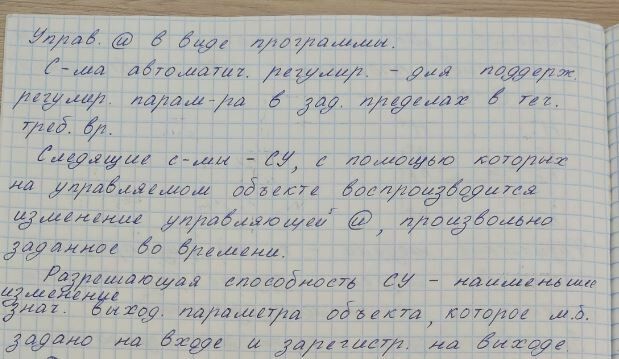 Управ. @ в виде программы.
С-ма автоматич. регулир. - для поддерж.
регулир. парам-ра в зад. пределах в теч.
треб. вр.
Следящие с-мы - СУ, с помощью которых
на управляемом объекте воспроизводится
изменение управляющей @, произвольно
заданное во времени.
Разрешающая способность СУ - наименьшие
изменение
знач. выход. параметра объекта, которое м.б.
задано на входе и зарегистр. на выходе